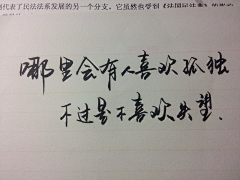 代表了民法法系发展的另一个分支。它虽然也受到《法国民法典》的影响
哪里会有人喜欢孤独
不过是不喜欢失望.